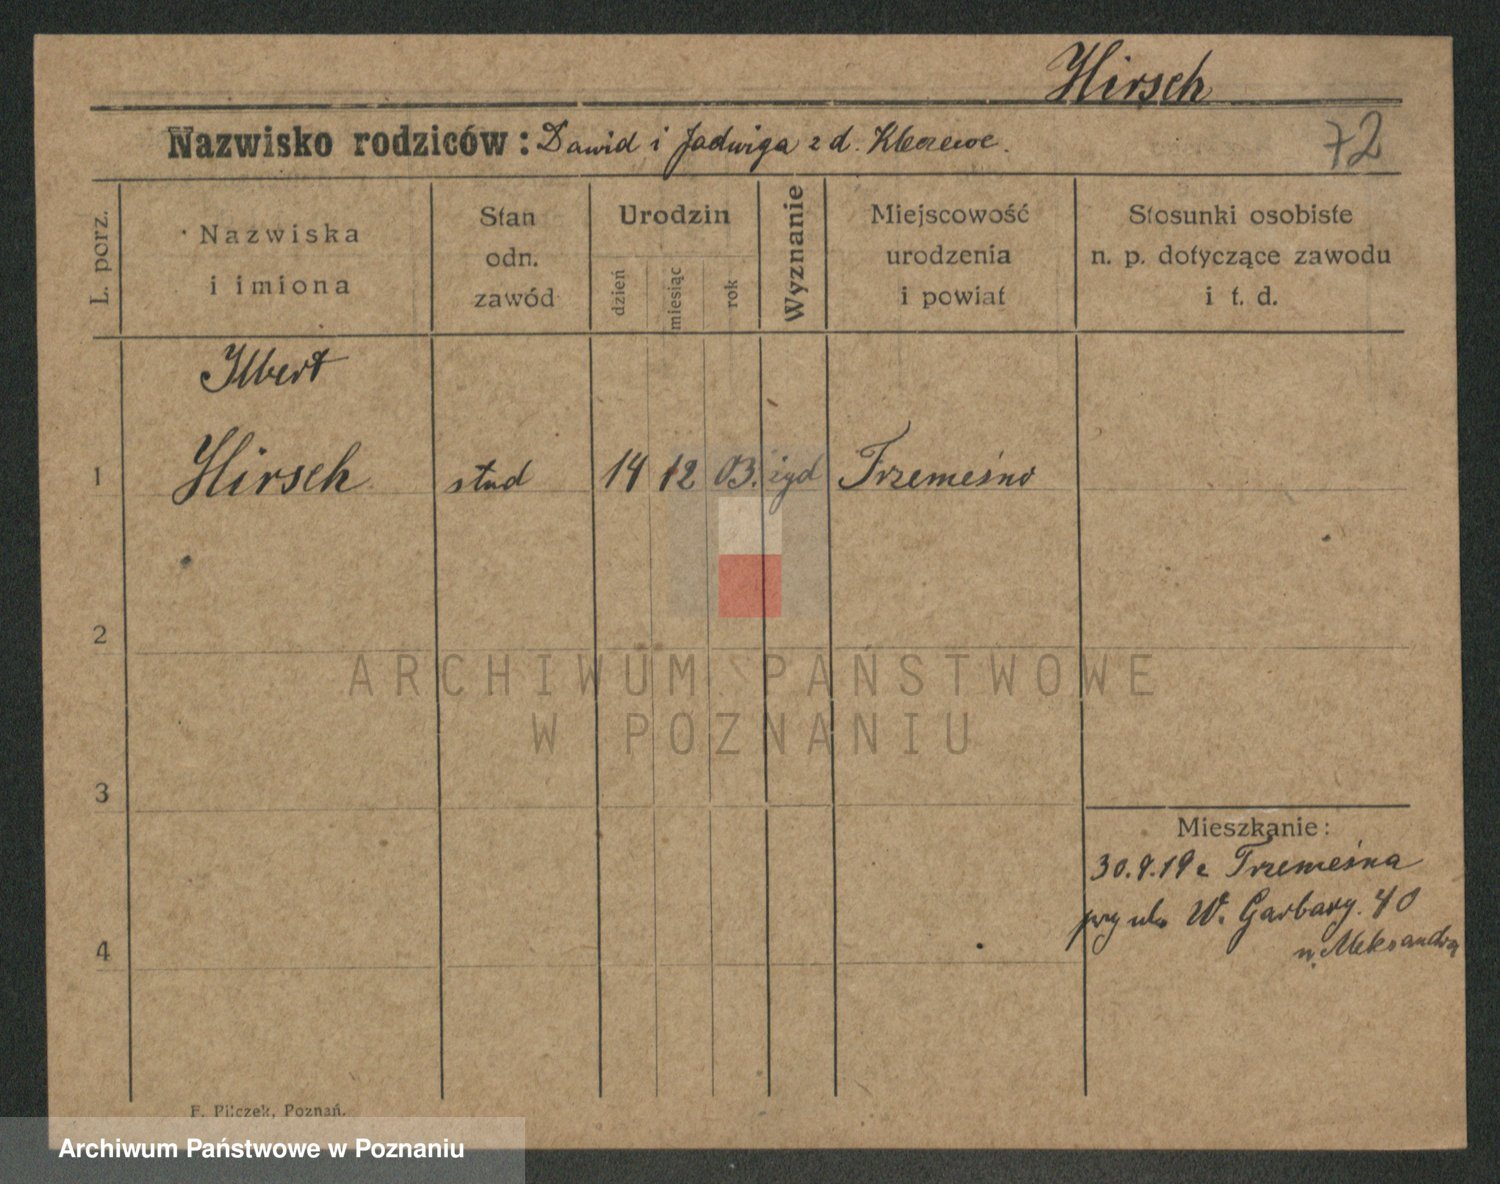 Hirsch
Nazwisko rodziców: Dawid i Jadwiga z d.
72
L. porz.
Nazwiska
i imiona
Stan
odn.
zawód
Urodzin
dzień
miesiąc
rok
Wyznanie
Miejscowość
urodzenia
i powiat
Stosunki osobiste
n. p. dotyczące zawodu
i t. d.
Ilbert
1 Hirsch stud 14 12 03. żyd Trzemeśno
2
3
4
Mieszkanie:
30.9.19 z Trzemeśna
przy ul. W. Garbary. 40
n. Aleksandra
F. Pilczek, Poznań.
ARCHIWUM PAŃSTWOWE
W POZNANIU
Archiwum Państwowe w Poznaniu